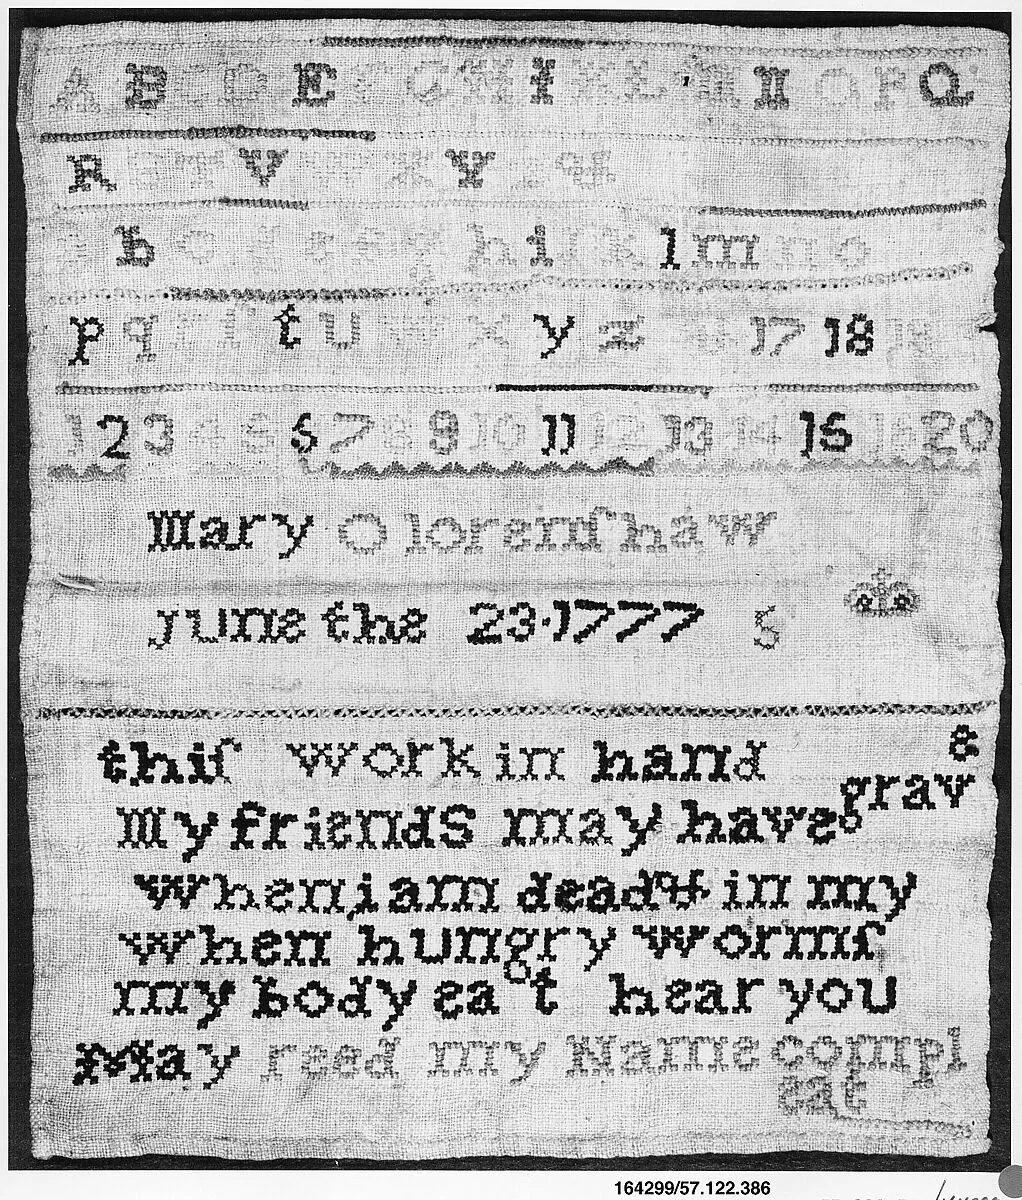 A B C D E F G H I K L M N O P Q
R S T V W X Y Z &
a b c d e f g h i j k l m n o
p q r s t u w x y z & 17 18 19
1 2 3 4 5 6 7 8 9 10 11 12 13 14 15 16 20
Mary Olorenſhaw
june the 23·1777 S
thiſ work in hand
my friends may have
when i am dead & in my grave
when hungry wormſ
my body eat hear you
May reed my Name compleat
164299/57.122.386